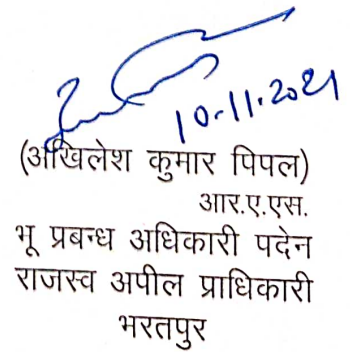 10.11.2021
(अखिलेश कुमार पिपल)
आर.ए.एस.
भू प्रबन्ध अधिकारी पदेन
राजस्व अपील प्राधिकारी
भरतपुर